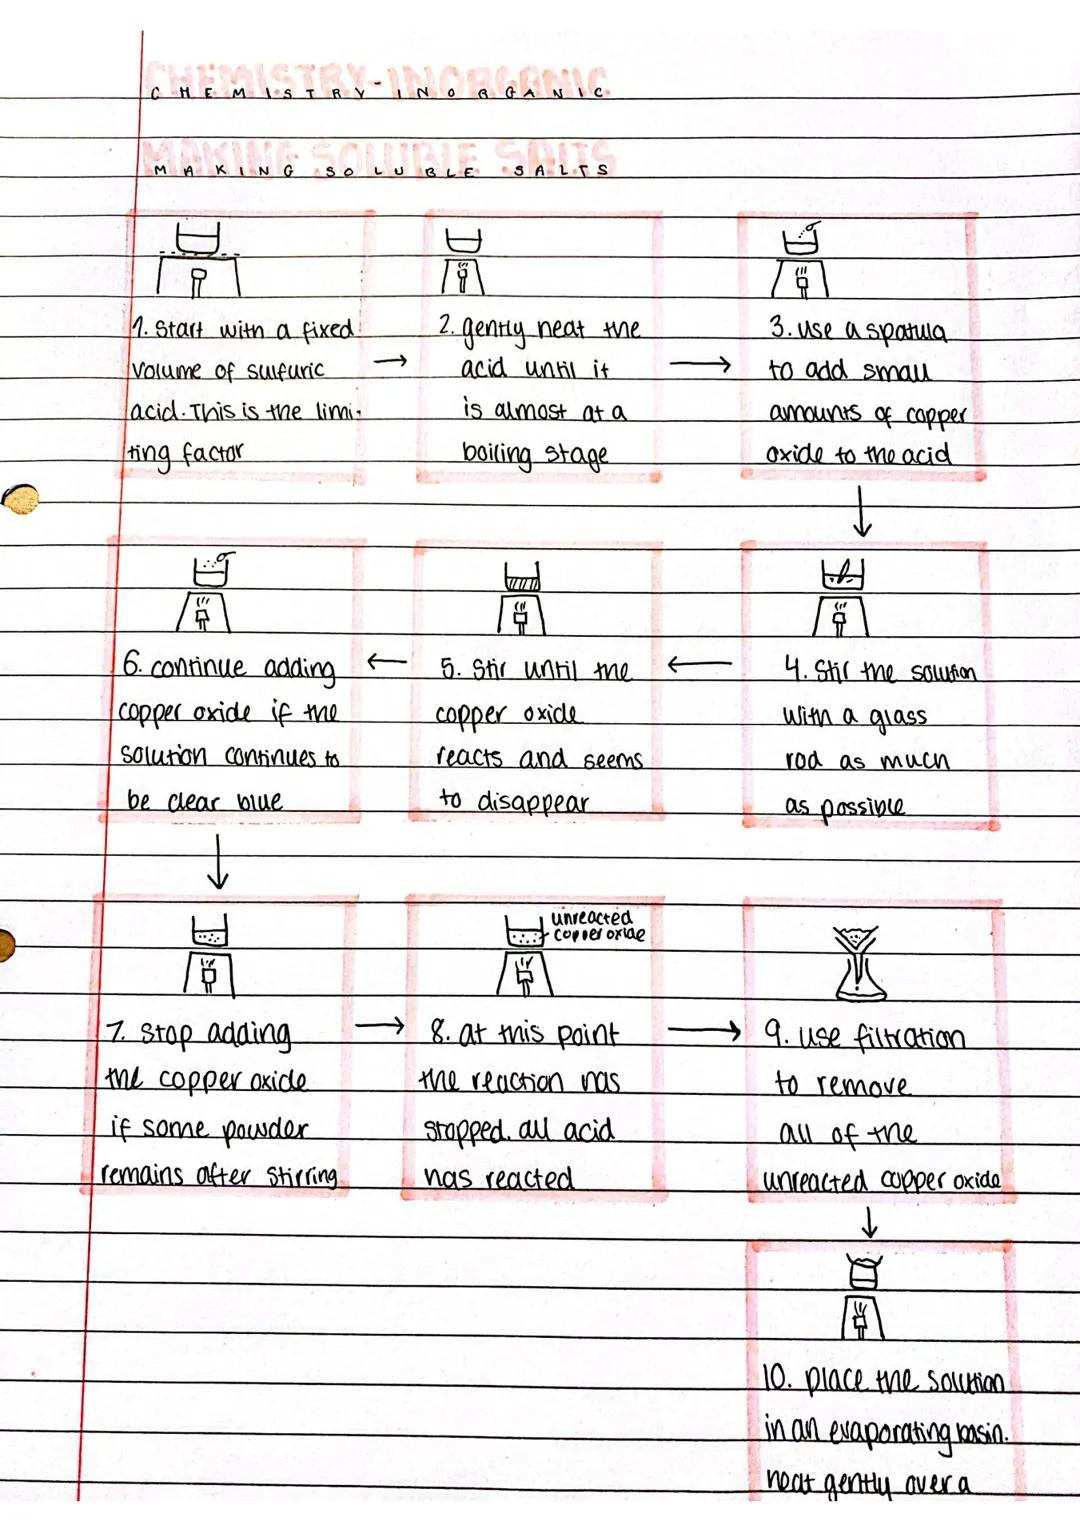 CHEMISTRY-INORGANIC
CHEMISTRY INORGANIC
MAKING SOLUBLE SALTS
MAKING SOLUBLE SALTS
1. Start with a fixed
volume of sulfuric
acid. This is the limi-
ting factor
2. gently heat the
acid until it
is almost at a
boiling stage
3. use a spatula
to add small
amounts of copper
oxide to the acid
4. Stir the solution
with a glass
rod as much
as possible
5. Stir until the
copper oxide
reacts and seems
to disappear
6. continue adding
copper oxide if the
solution continues to
be clear blue
7. Stop adding
the copper oxide
if some powder
remains after stirring
unreacted
copper oxide
8. at this point
the reaction has
stopped. all acid
has reacted
9. use filtration
to remove
all of the
unreacted copper oxide
10. place the solution
in an evaporating basin.
heat gently over a